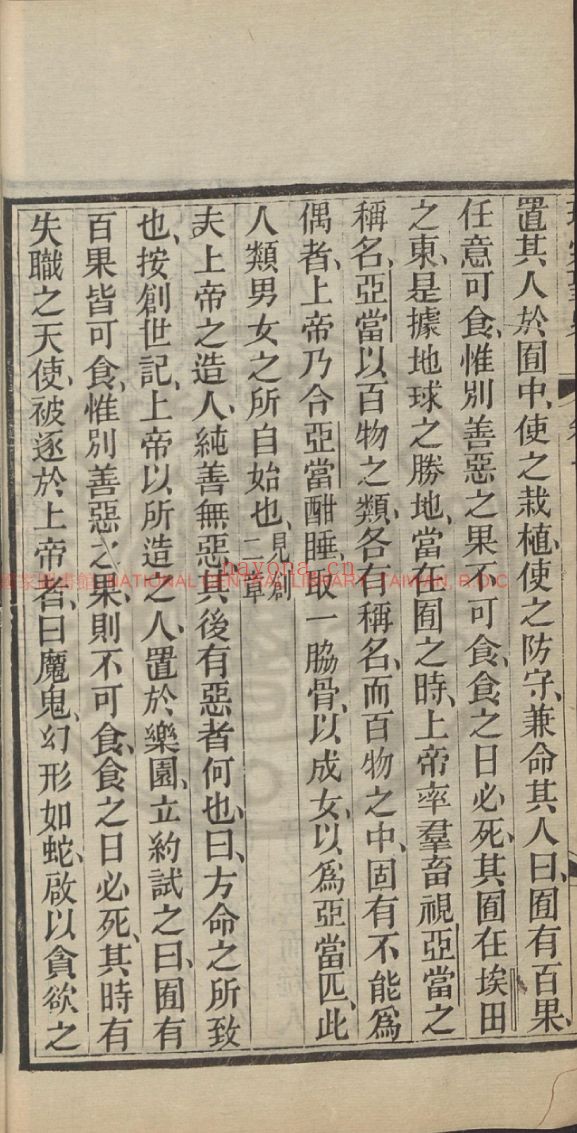 置其人於囿中、使之栽植、使之防守、兼命其人曰、囿有百果、
任意可食、惟別善惡之果不可食、食之日必死、其囿在埃田
之東、是據地球之勝地、當在囿之時、上帝率羣畜視亞當之
稱名、亞當以百物之類、各有稱名、而百物之中、固有不能為
偶者、上帝乃令亞當酣睡、取一脇骨、以成女、以為亞當匹、此
人類男女之所自始也、見創二章
夫上帝之造人、純善無惡、其後有惡者何也、曰、方命之所致
也、按創世記、上帝以所造之人、置於樂園、立約試之曰、囿有
百果皆可食、惟別善惡之果、則不可食、食之日必死、其時有
失職之天使、被逐於上帝者、曰魔鬼、幻形如蛇、啟以貪欲之
nayona.cn
國家圖書館 NATIONAL CENTRAL LIBRARY, TAIWAN, R.O.C